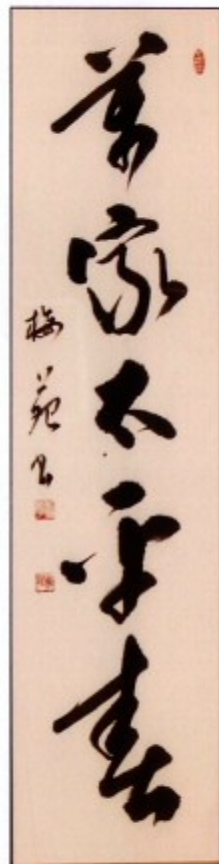 萬家太平春
梅苑書